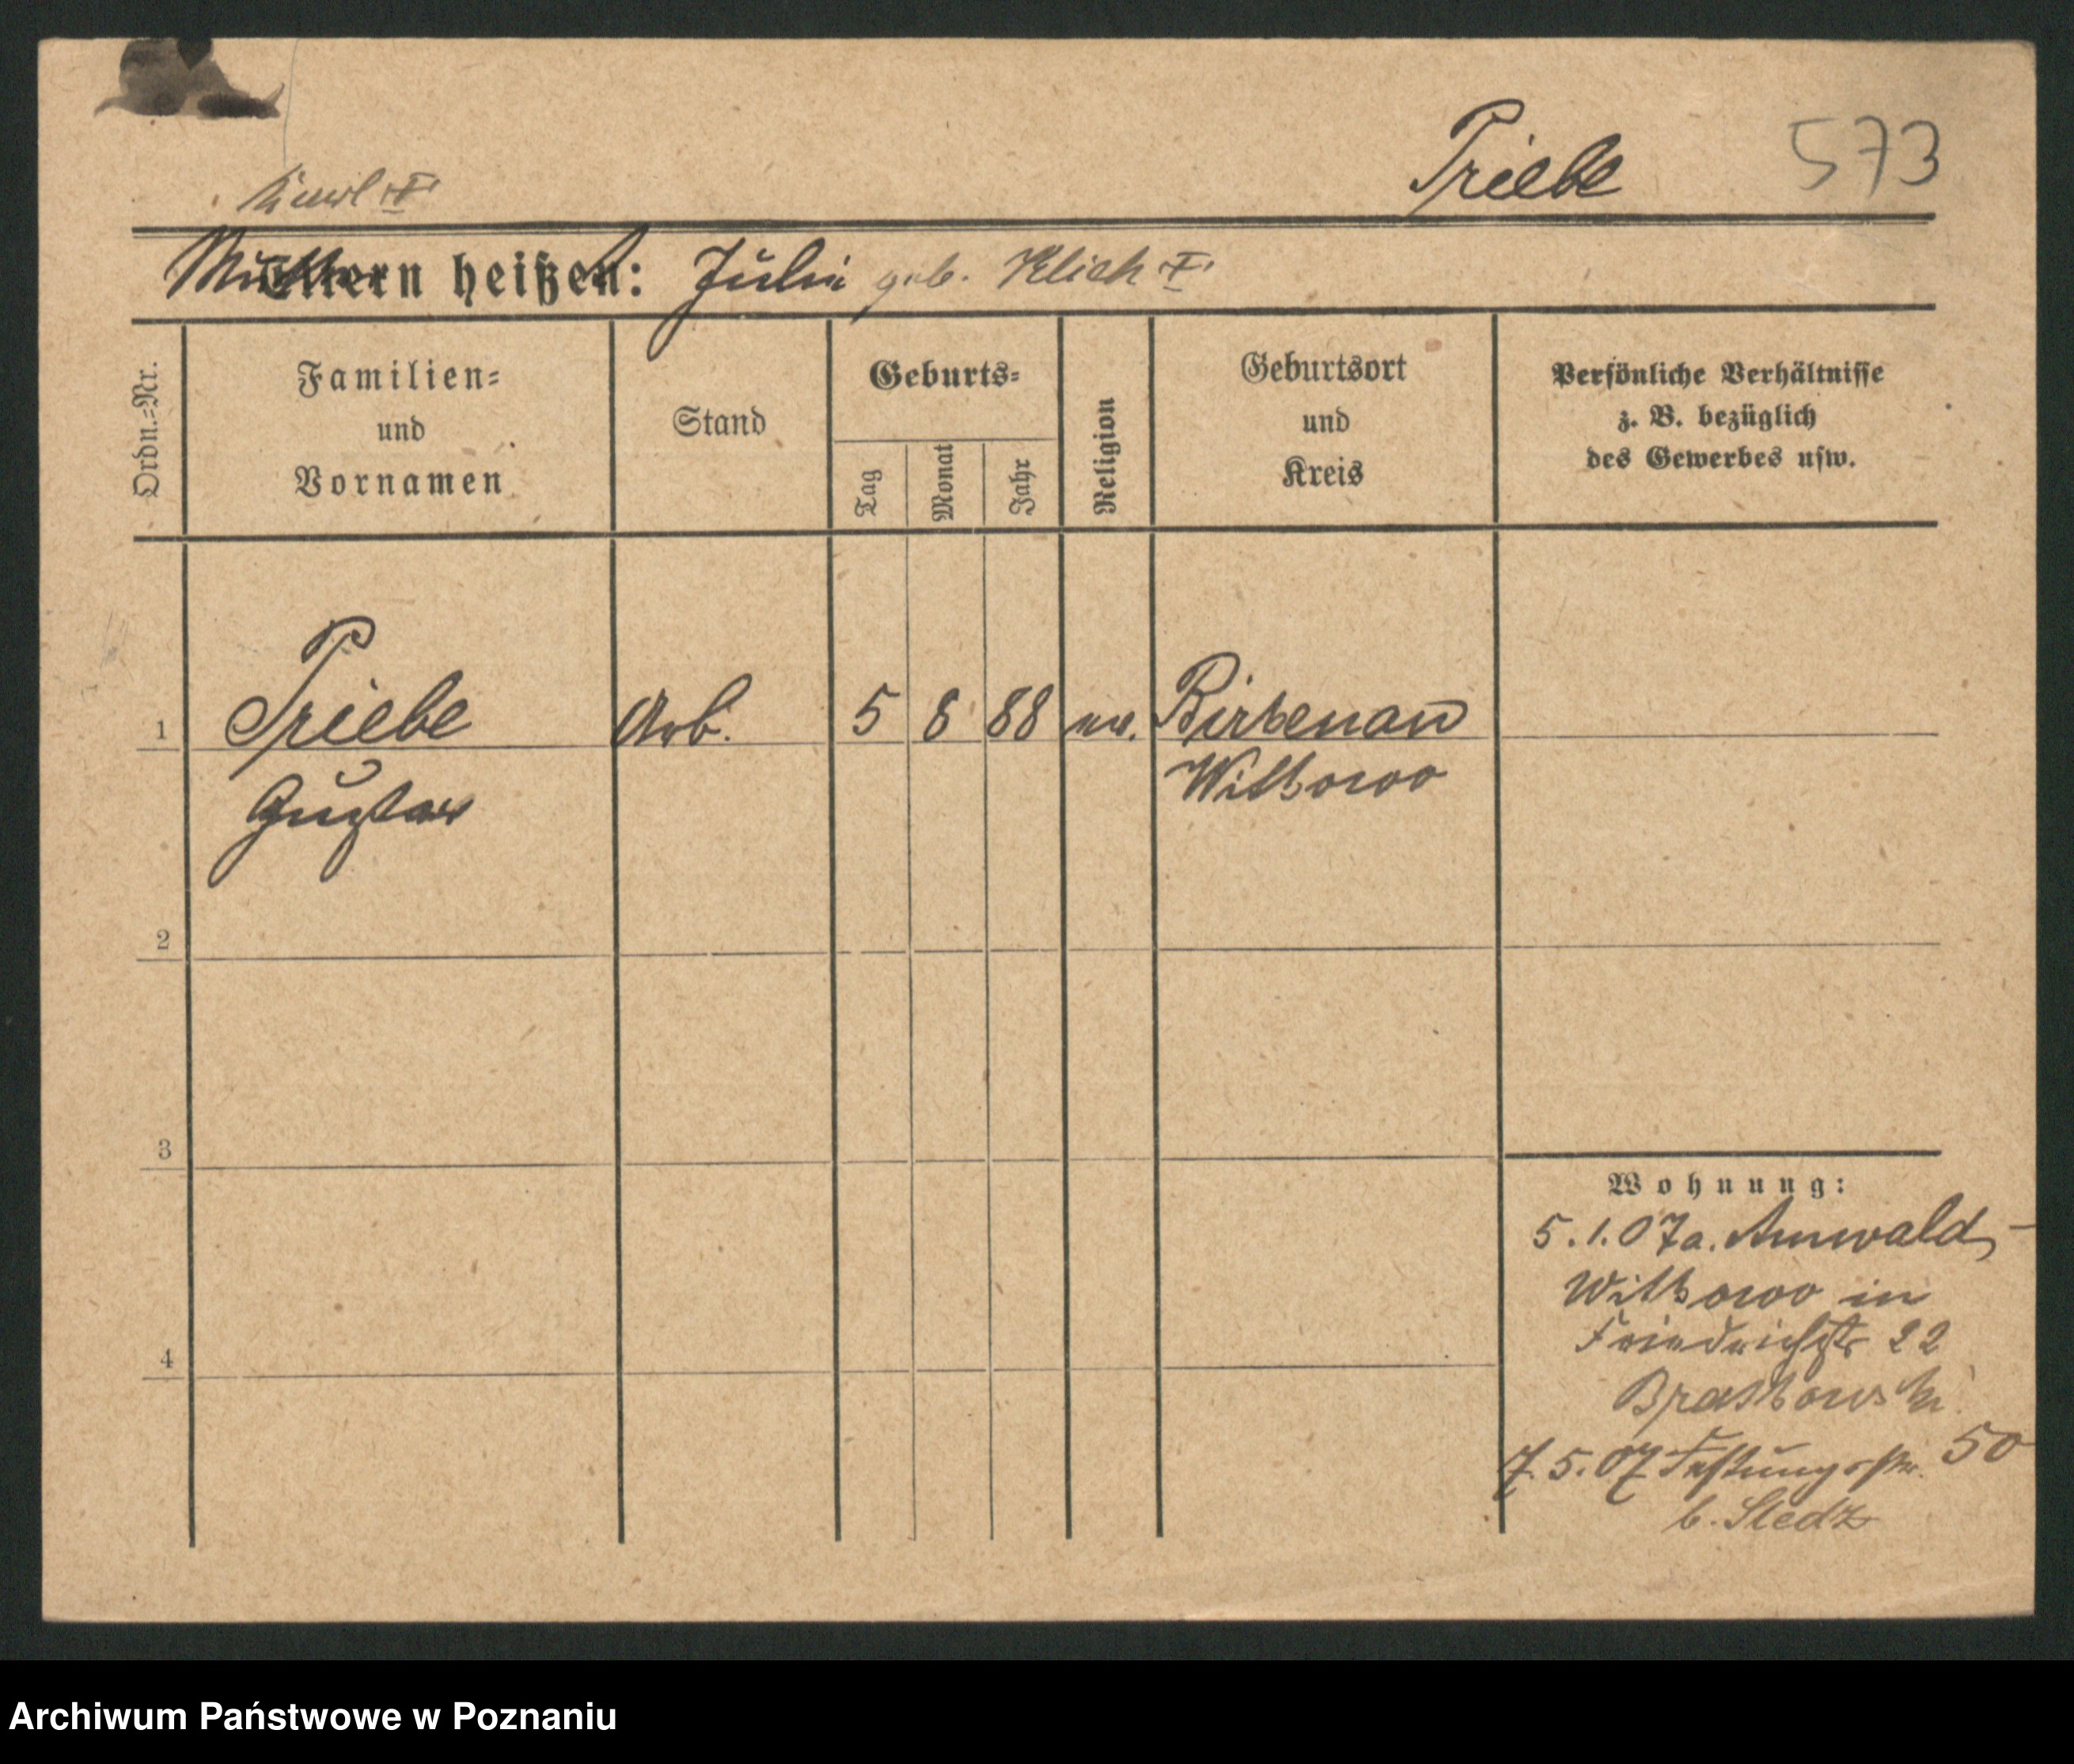 Triebe 573
Mutter Eltern heißen: Julie geb. Klich
Ordn.=Nr.
Familien=
und
Vornamen
Stand
Geburts=
Tag
Monat
Jahr
Religion
Geburtsort
und
Kreis
Persönliche Verhältnisse
z. B. bezüglich
des Gewerbes usw.
1 Triebe Arb. 5 8 88 ev. Birkenau
Gustav Witkowo
2
3
4
Wohnung:
5.1.07 a.
Witkowo in
Friedrichstr 22
7.5.07 Festungsstr. 50
b. Sledz
Archiwum Państwowe w Poznaniu